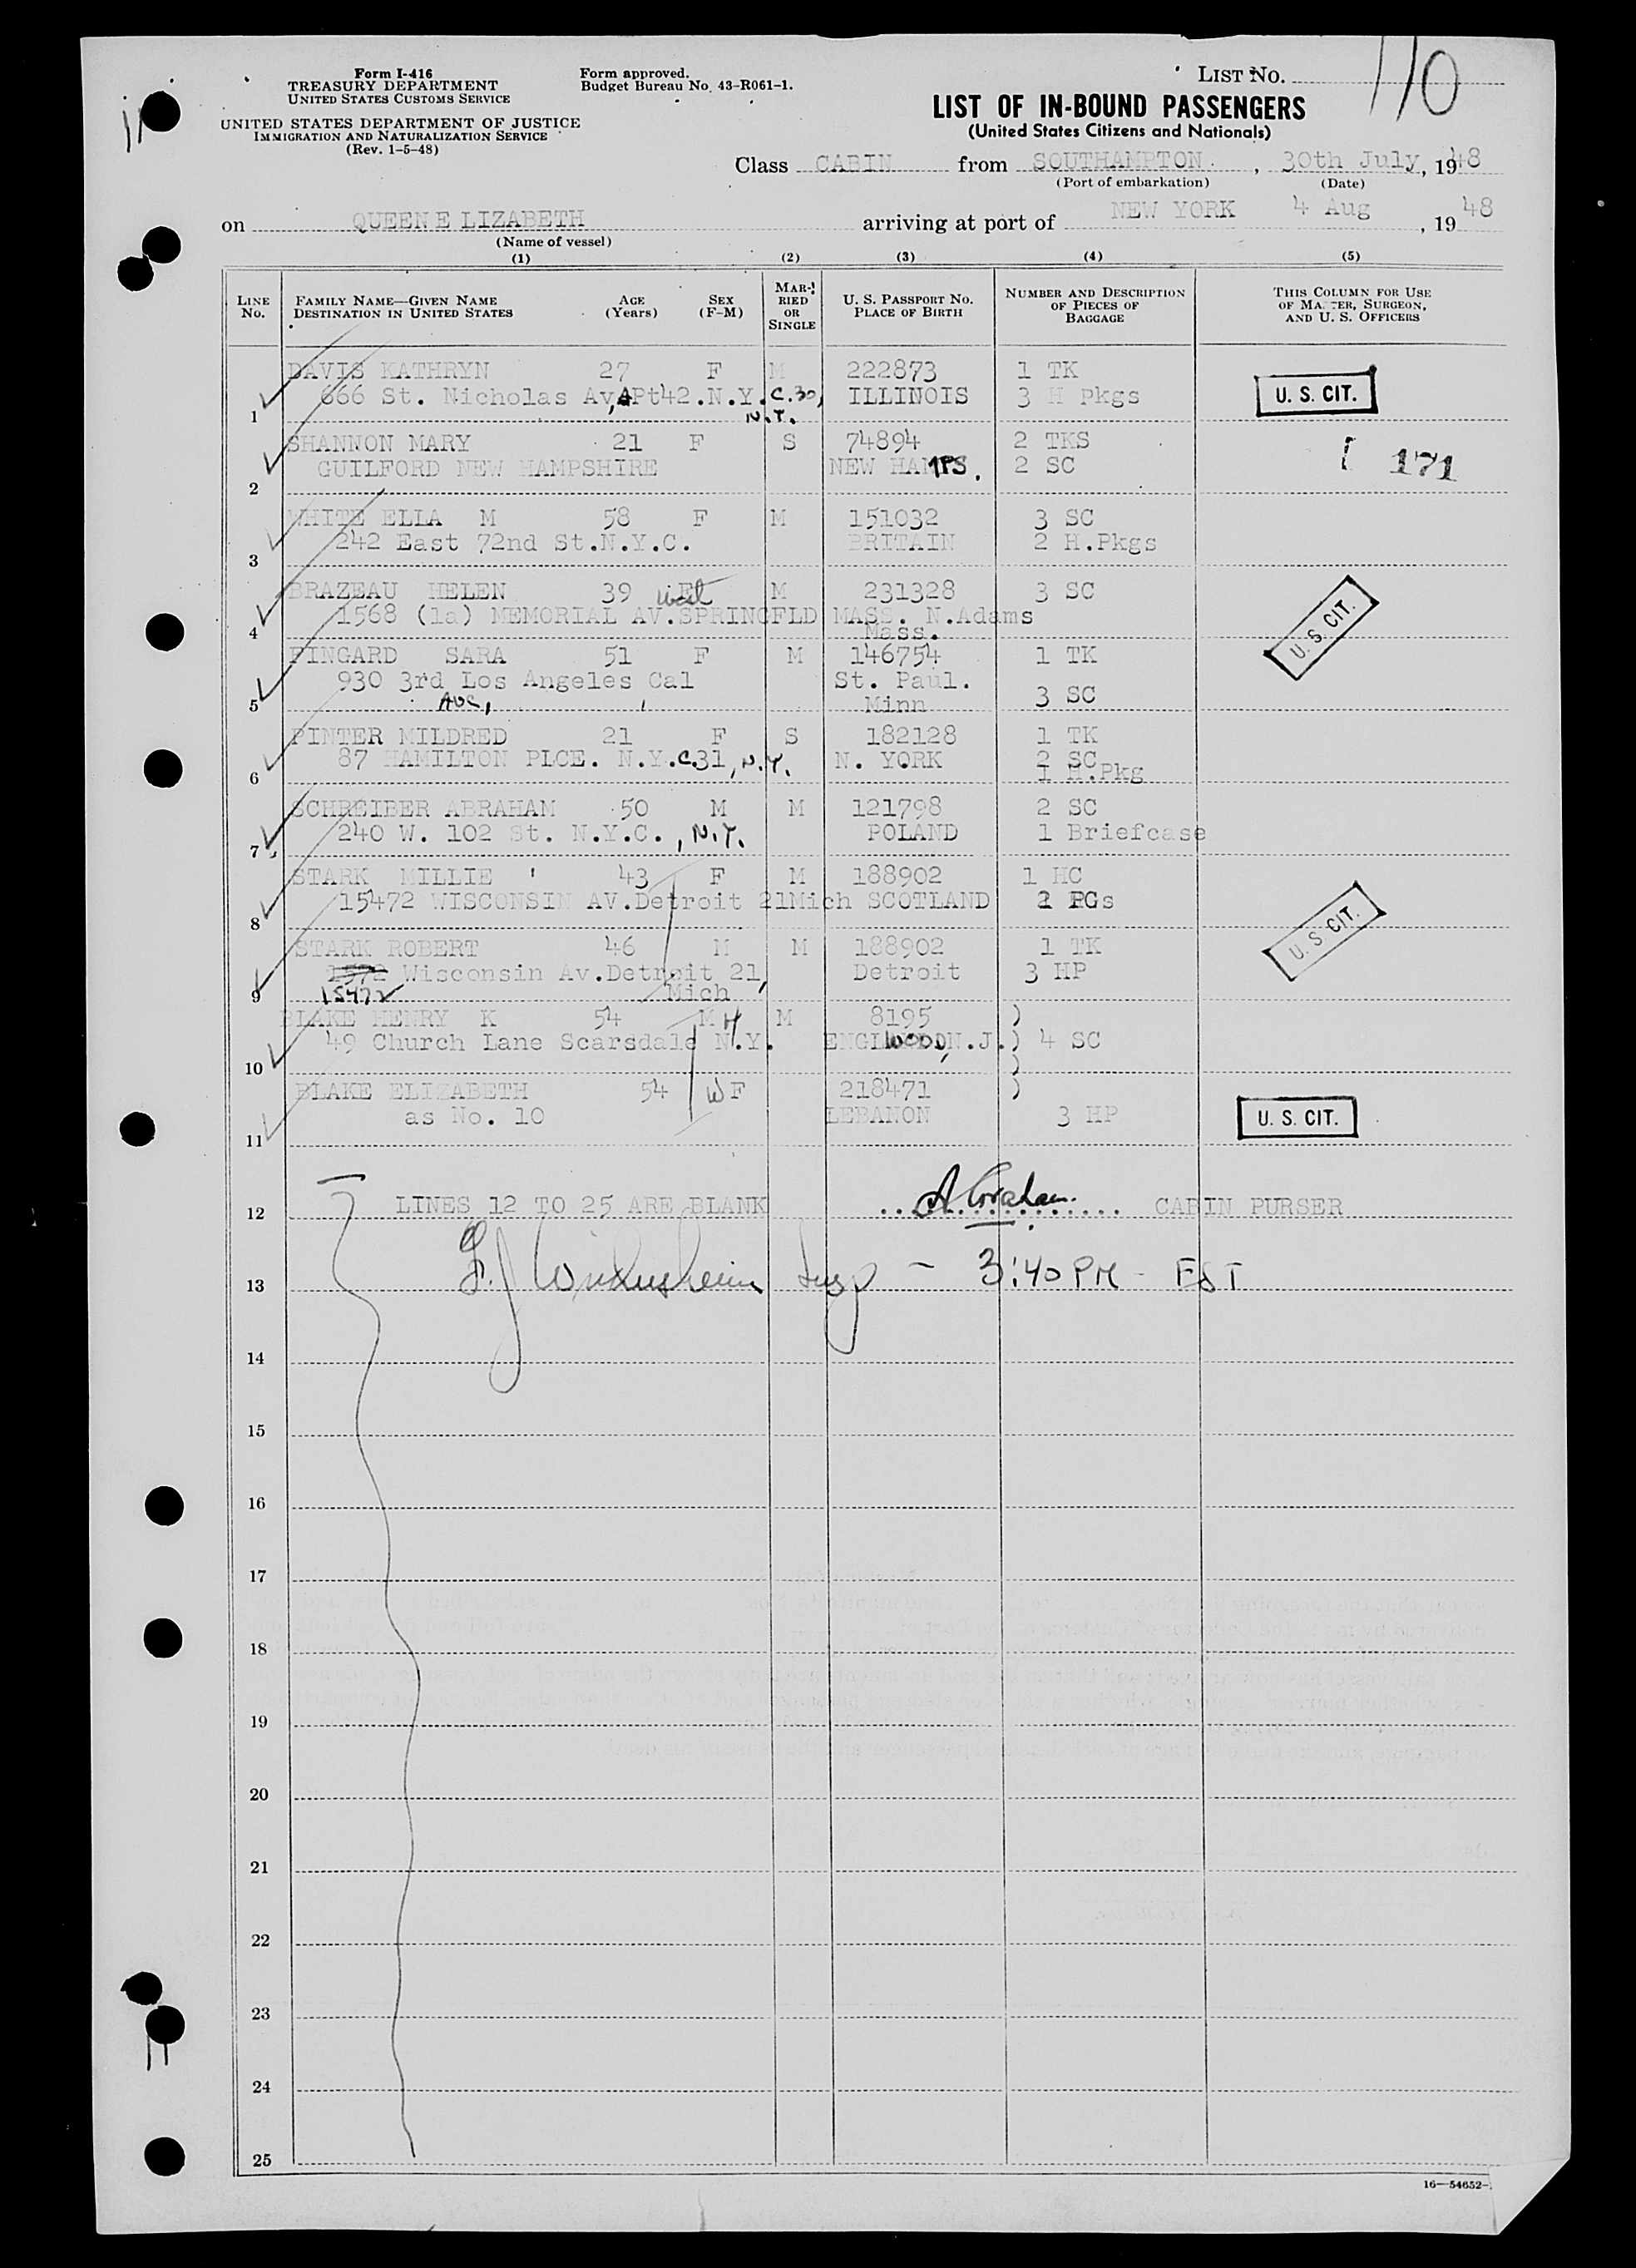 Form I-416
TREASURY DEPARTMENT
UNITED STATES CUSTOMS SERVICE
UNITED STATES DEPARTMENT OF JUSTICE
IMMIGRATION AND NATURALIZATION SERVICE
(Rev. 1-5-48)
Form approved.
Budget Bureau No. 43-R061-1.
LIST No. 110
LIST OF IN-BOUND PASSENGERS
(United States Citizens and Nationals)
Class CABIN from SOUTHAMPTON, 30th July, 1948
(Port of embarkation) (Date)
on QUEEN E LIZABETH arriving at port of NEW YORK 4 Aug, 19 48
(Name of vessel)
(1) (2) (3) (4) (5)
LINE No. FAMILY NAME—GIVEN NAME DESTINATION IN UNITED STATES AGE (Years) SEX (F-M) MARRIED OR SINGLE U. S. PASSPORT No. PLACE OF BIRTH NUMBER AND DESCRIPTION OF PIECES OF BAGGAGE THIS COLUMN FOR USE OF MASTER, SURGEON, AND U. S. OFFICERS
DAVIS KATHRYN 27 F M 222873 1 TK
1 666 St. Nicholas Av, APt42.N.Y.C.30, N.Y. ILLINOIS 3 H Pkgs U. S. CIT.
SHANNON MARY 21 F S 74894 2 TKS
2 GUILFORD NEW HAMPSHIRE NEW HAMPS. 2 SC 171
WHITE ELLA M 58 F M 151032 3 SC
3 242 East 72nd St.N.Y.C. BRITAIN 2 H.Pkgs
BRAZEAU HELEN 39 M 231328 3 SC
4 1568 (1a) MEMORIAL AV.SPRINGFLD MASS. N.Adams Mass. U. S. CIT.
FINGARD SARA 51 F M 146754 1 TK
5 930 3rd Ave, Los Angeles Cal St. Paul. Minn 3 SC
PINTER MILDRED 21 F S 182128 1 TK
6 87 HAMILTON PLCE. N.Y.C.31, N.Y. N. YORK 2 SC
1 H.Pkg
SCHREIBER ABRAHAM 50 M M 121798 2 SC
7 240 W. 102 St. N.Y.C., N.Y. POLAND 1 Briefcase
STARK MILLIE 43 F M 188902 1 HC
8 15472 WISCONSIN AV.Detroit 21Mich SCOTLAND 2 PGs
STARK ROBERT 46 M M 188902 1 TK U. S. CIT.
9 15472 Wisconsin Av.Detroit 21, Mich Detroit 3 HP
BLAKE HENRY K 54 M H M 8195 )
10 49 Church Lane Scarsdale N.Y. ENGLWOOD, N.J.) 4 SC
)
BLAKE ELIZABETH 54 W F 218471 )
11 as No. 10 LEBANON 3 HP U. S. CIT.
12 LINES 12 TO 25 ARE BLANK A Graham. CABIN PURSER
13 Insp - 3:40 PM - EST
14
15
16
17
18
19
20
21
22
23
24
25
16—54652-